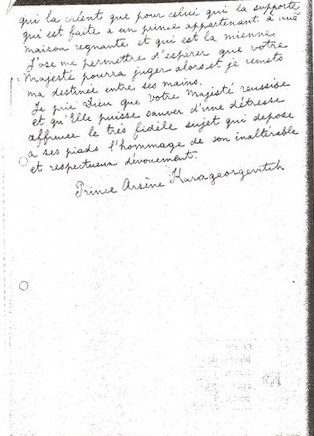 qui la créent que pour celui qui la supporte
qui est faite a un prince appartenant à une
maison regnante et qui est la mienne
J'ose me permettre d'espérer que votre
Majesté pourra juger alors et je remets
ma destinée entre ses mains.
Je prie Dieu que Votre Majesté reussise
et qu'Elle puisse sauver d'une détresse
affreuse le très fidèle sujet qui depose
a ses pieds l'hommage de son inaltérable
et respectueux dévouement.
Prince Arsène Karageorgevitch